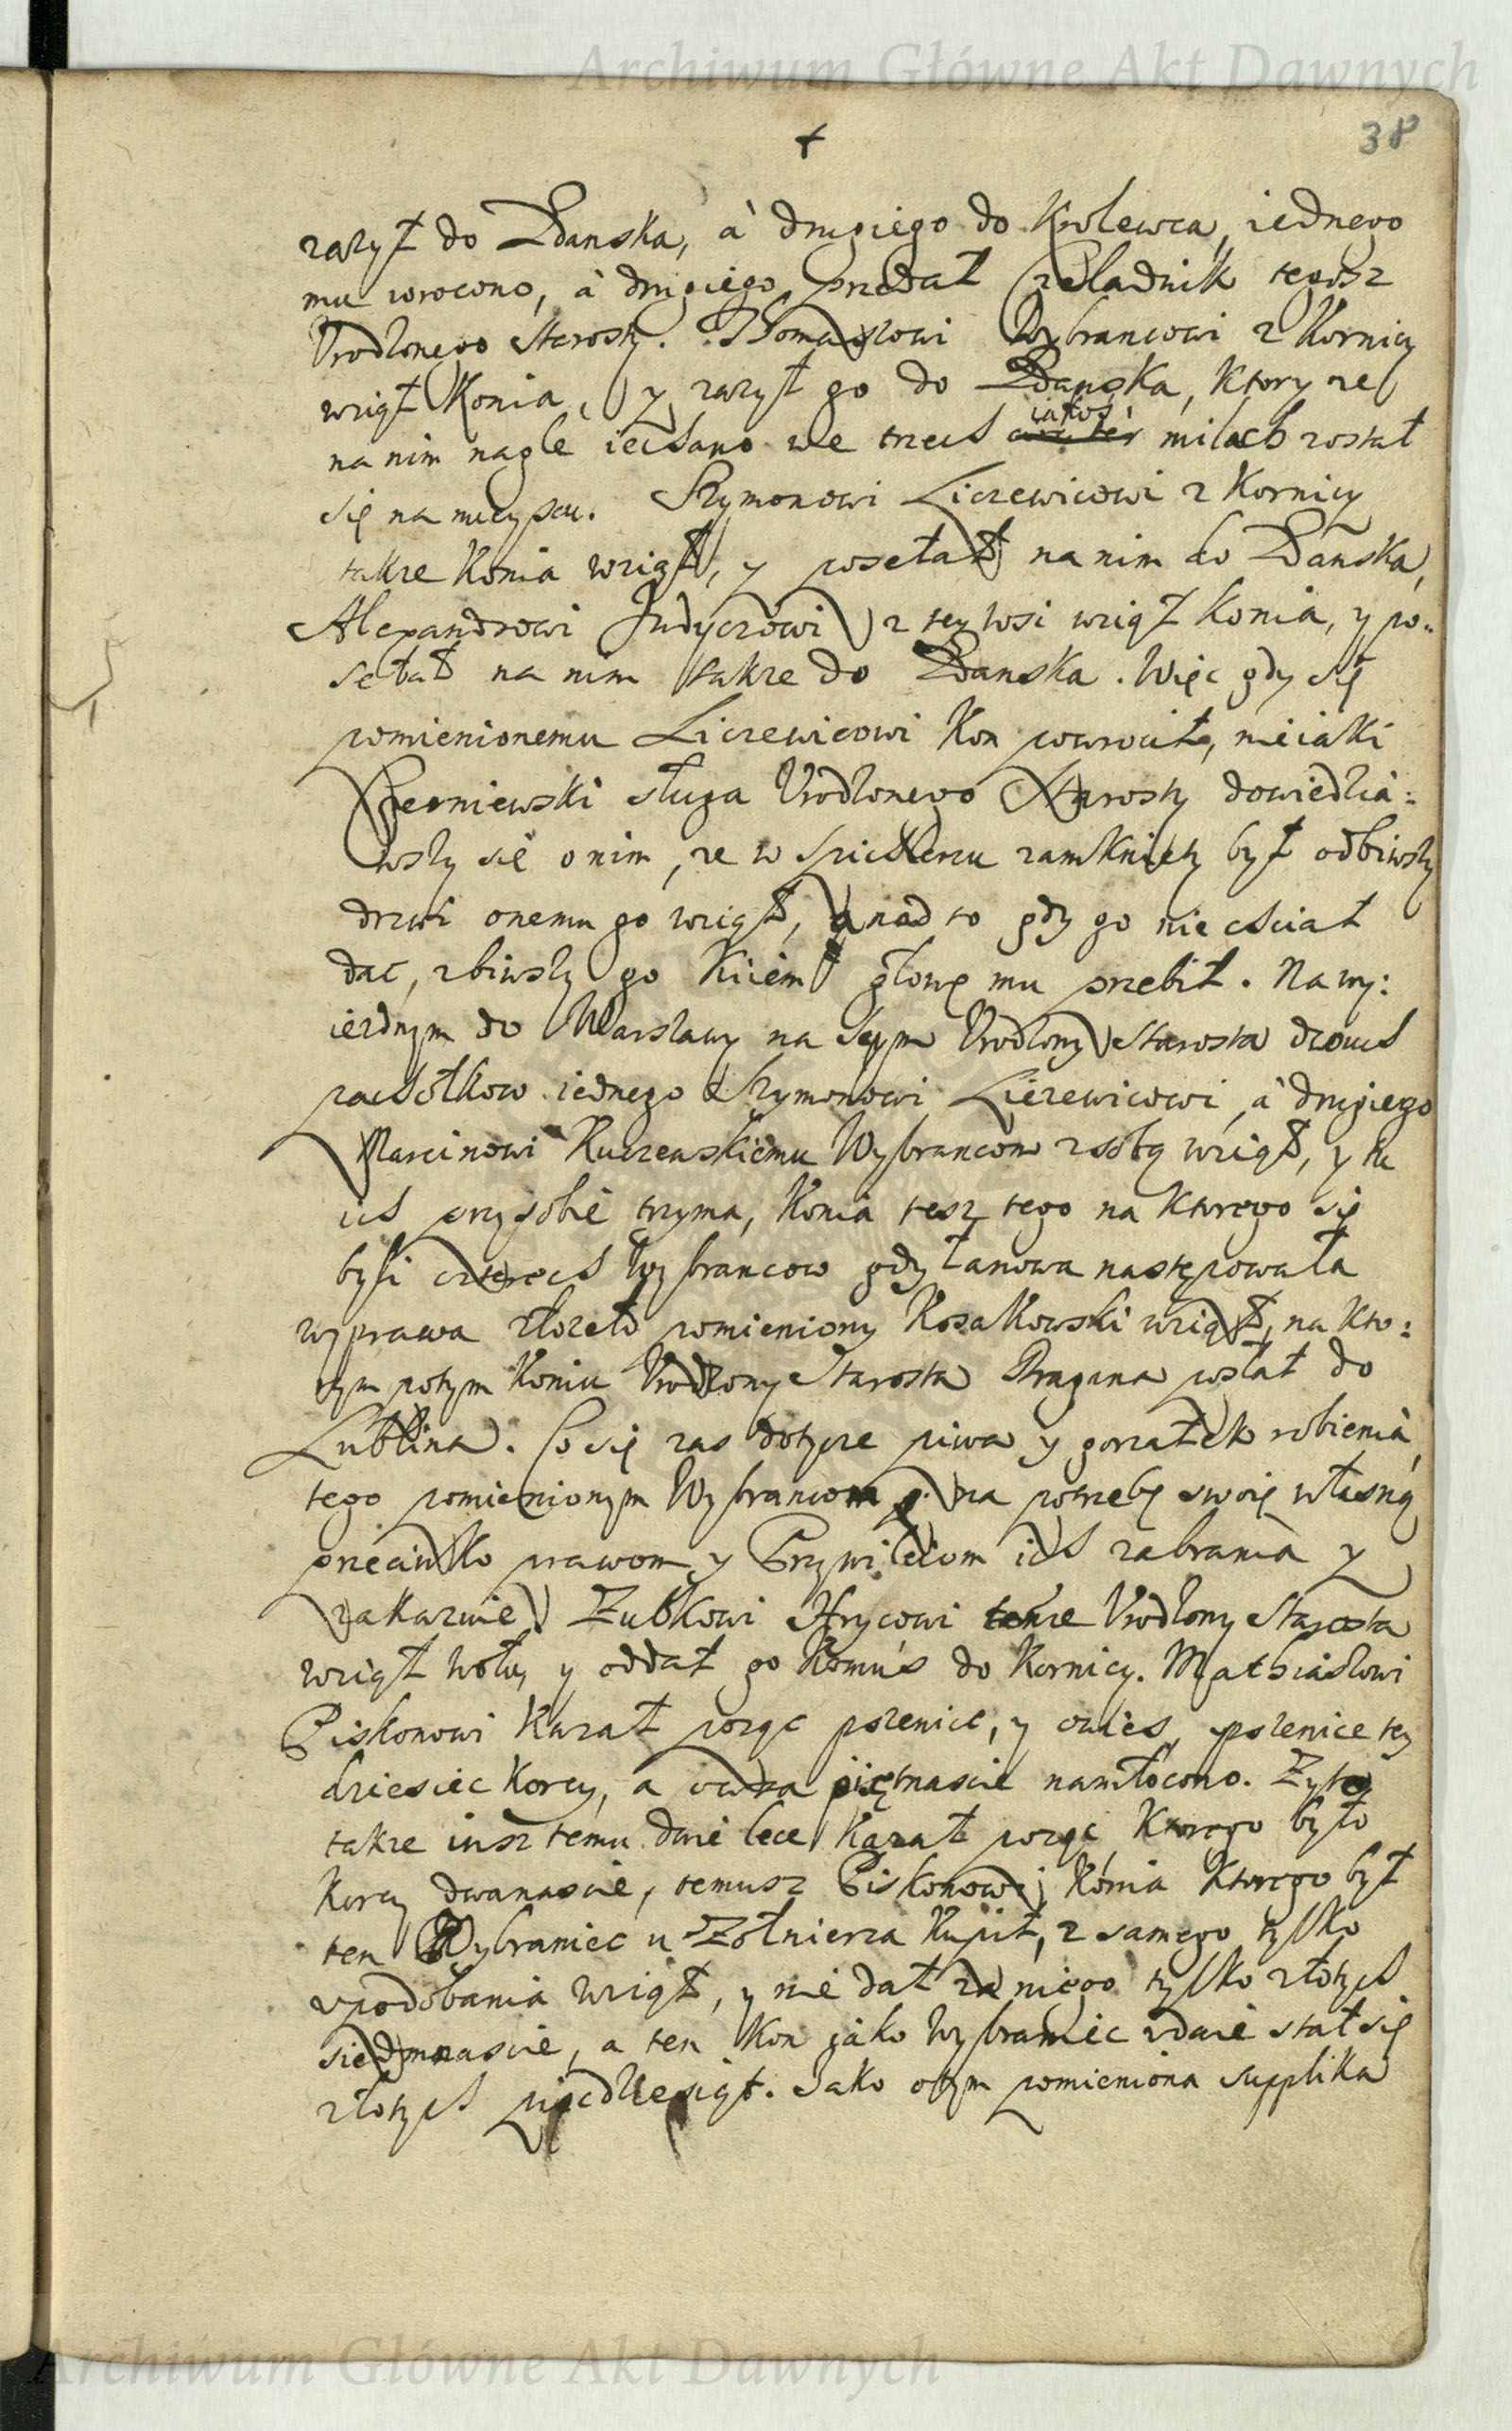 Archiwum Główne Akt Dawnych
38
zazył do Gdanska, à drugiego do Krolewca, iednego
mu wrocono, à drugiego przedał czeladnik tegosz
Vrodzonego Starosty. Thomaszowi Wybrancowi z Kornicy
wziął Konia, y zazył go do Gdanska, Ktory ze
na nim nagle iechano we trzech iakos milach został
się na mieyscu. Szymonowi Liczewicowi z Kornicy
takze Konia wziął, y posełał na nim do Gdanska,
Alexandrowi Judyczowi z tey wsi wziął Konia, y po-
sełał na nim takze do Gdanska. Więc gdy się
pomienionemu Liczewicowi Kon powrocił, nieiaki
Czerniewski sługa Vrodzonego Starosty dowiedzia:
wszy się o nim, ze w Spichlerzu zamkniety był odbiwszy
drzwi onemu go wziął, a nad to gdy go nie chciał
dać, zbiwszy go Kiiem głowę mu przebił. Na wy:
iezdnym do Warszawy na Seym Vrodzony Starosta dwuch
pachołkow iednego Szymonowi Liczewicowi, à drugiego
Marcinowi Kurzewskiemu Wybrancom z sobą wziął, y tu
ich przy sobie trzyma, Konia tesz tego na Ktorego się
byli czterech Wybrancow gdy łanowa następowała
wyprawa złozeło pomieniony Kosakowski wziął, na Kto:
rym potym Koniu Vrodzony Starosta Dragana posłał do
Lublina. Co się zas dotycze piwa y gorzałek robienia,
tego pomienionym Wybrancom na potrzebę swoię własną
przeciwko prawom y Przywileiom ich zabrania y
zakazuie. Zubkowi Hrycowi tenze Vrodzony Starosta
wziął wołu, y oddał go Komuś do Kornicy. Mathiaszowi
Piskonowi Kazał poząc pszenice, y owies, pszenice tey
dziesiec Korcy, a owsa piętnascie namłocono. Zyto
takze iusz temu dwie lecie Kazał poząc, Ktorego było
Korcy dwanascie, temusz Piskonowi Konia Ktorego był
ten Wybraniec u Zołnierza Kupił, z samego tylko
vpodobania wziął, y nie dał za niego tylko złotych
siedmnascie, a ten Kon jako Wybraniec zdaie stał się
złotych pięcdziesiąt. Jako o tym pomieniona supplika
Archiwum Główne Akt Dawnych